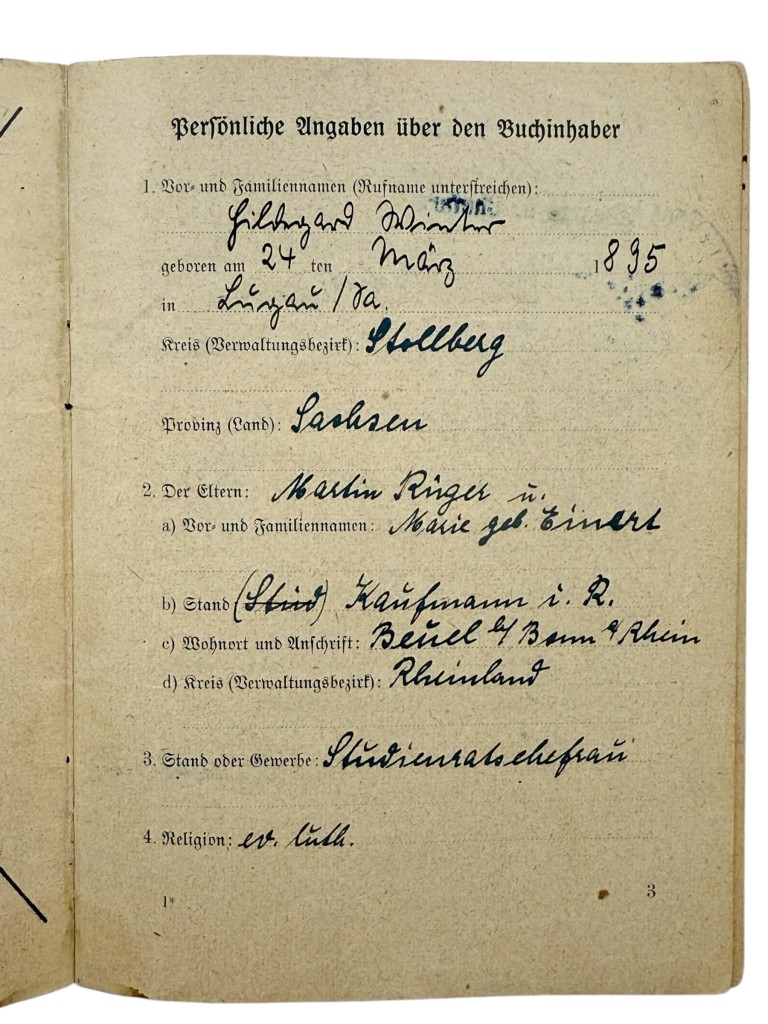 Persönliche Angaben über den Buchinhaber
1. Vor- und Familiennamen (Rufname unterstreichen):
Hildegard Winter
geboren am 24 ten März 1895
in Lugau / Sa.
Kreis (Verwaltungsbezirk): Stollberg
Provinz (Land): Sachsen
2. Der Eltern: Martin Rüger u.
a) Vor- und Familiennamen: Marie geb. Einert
b) Stand (Stud) Kaufmann i. R.
c) Wohnort und Anschrift: Beuel b/ Bonn a/ Rhein
d) Kreis (Verwaltungsbezirk): Rheinland
3. Stand oder Gewerbe: Studienratsehefrau
4. Religion: ev. luth.
1*
3